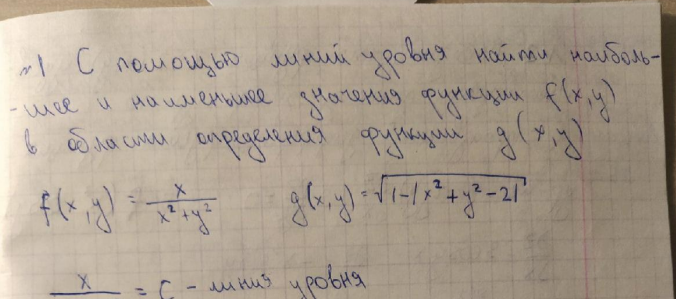 №1 С помощью линий уровня найти наиболь-
-шее и наименьшее значения функции f(x,y)
в области определения функции g(x,y)
f(x,y) = x/(x²+y²) g(x,y) = √(1-|x²+y²-2|)
x/ = C - линия уровня